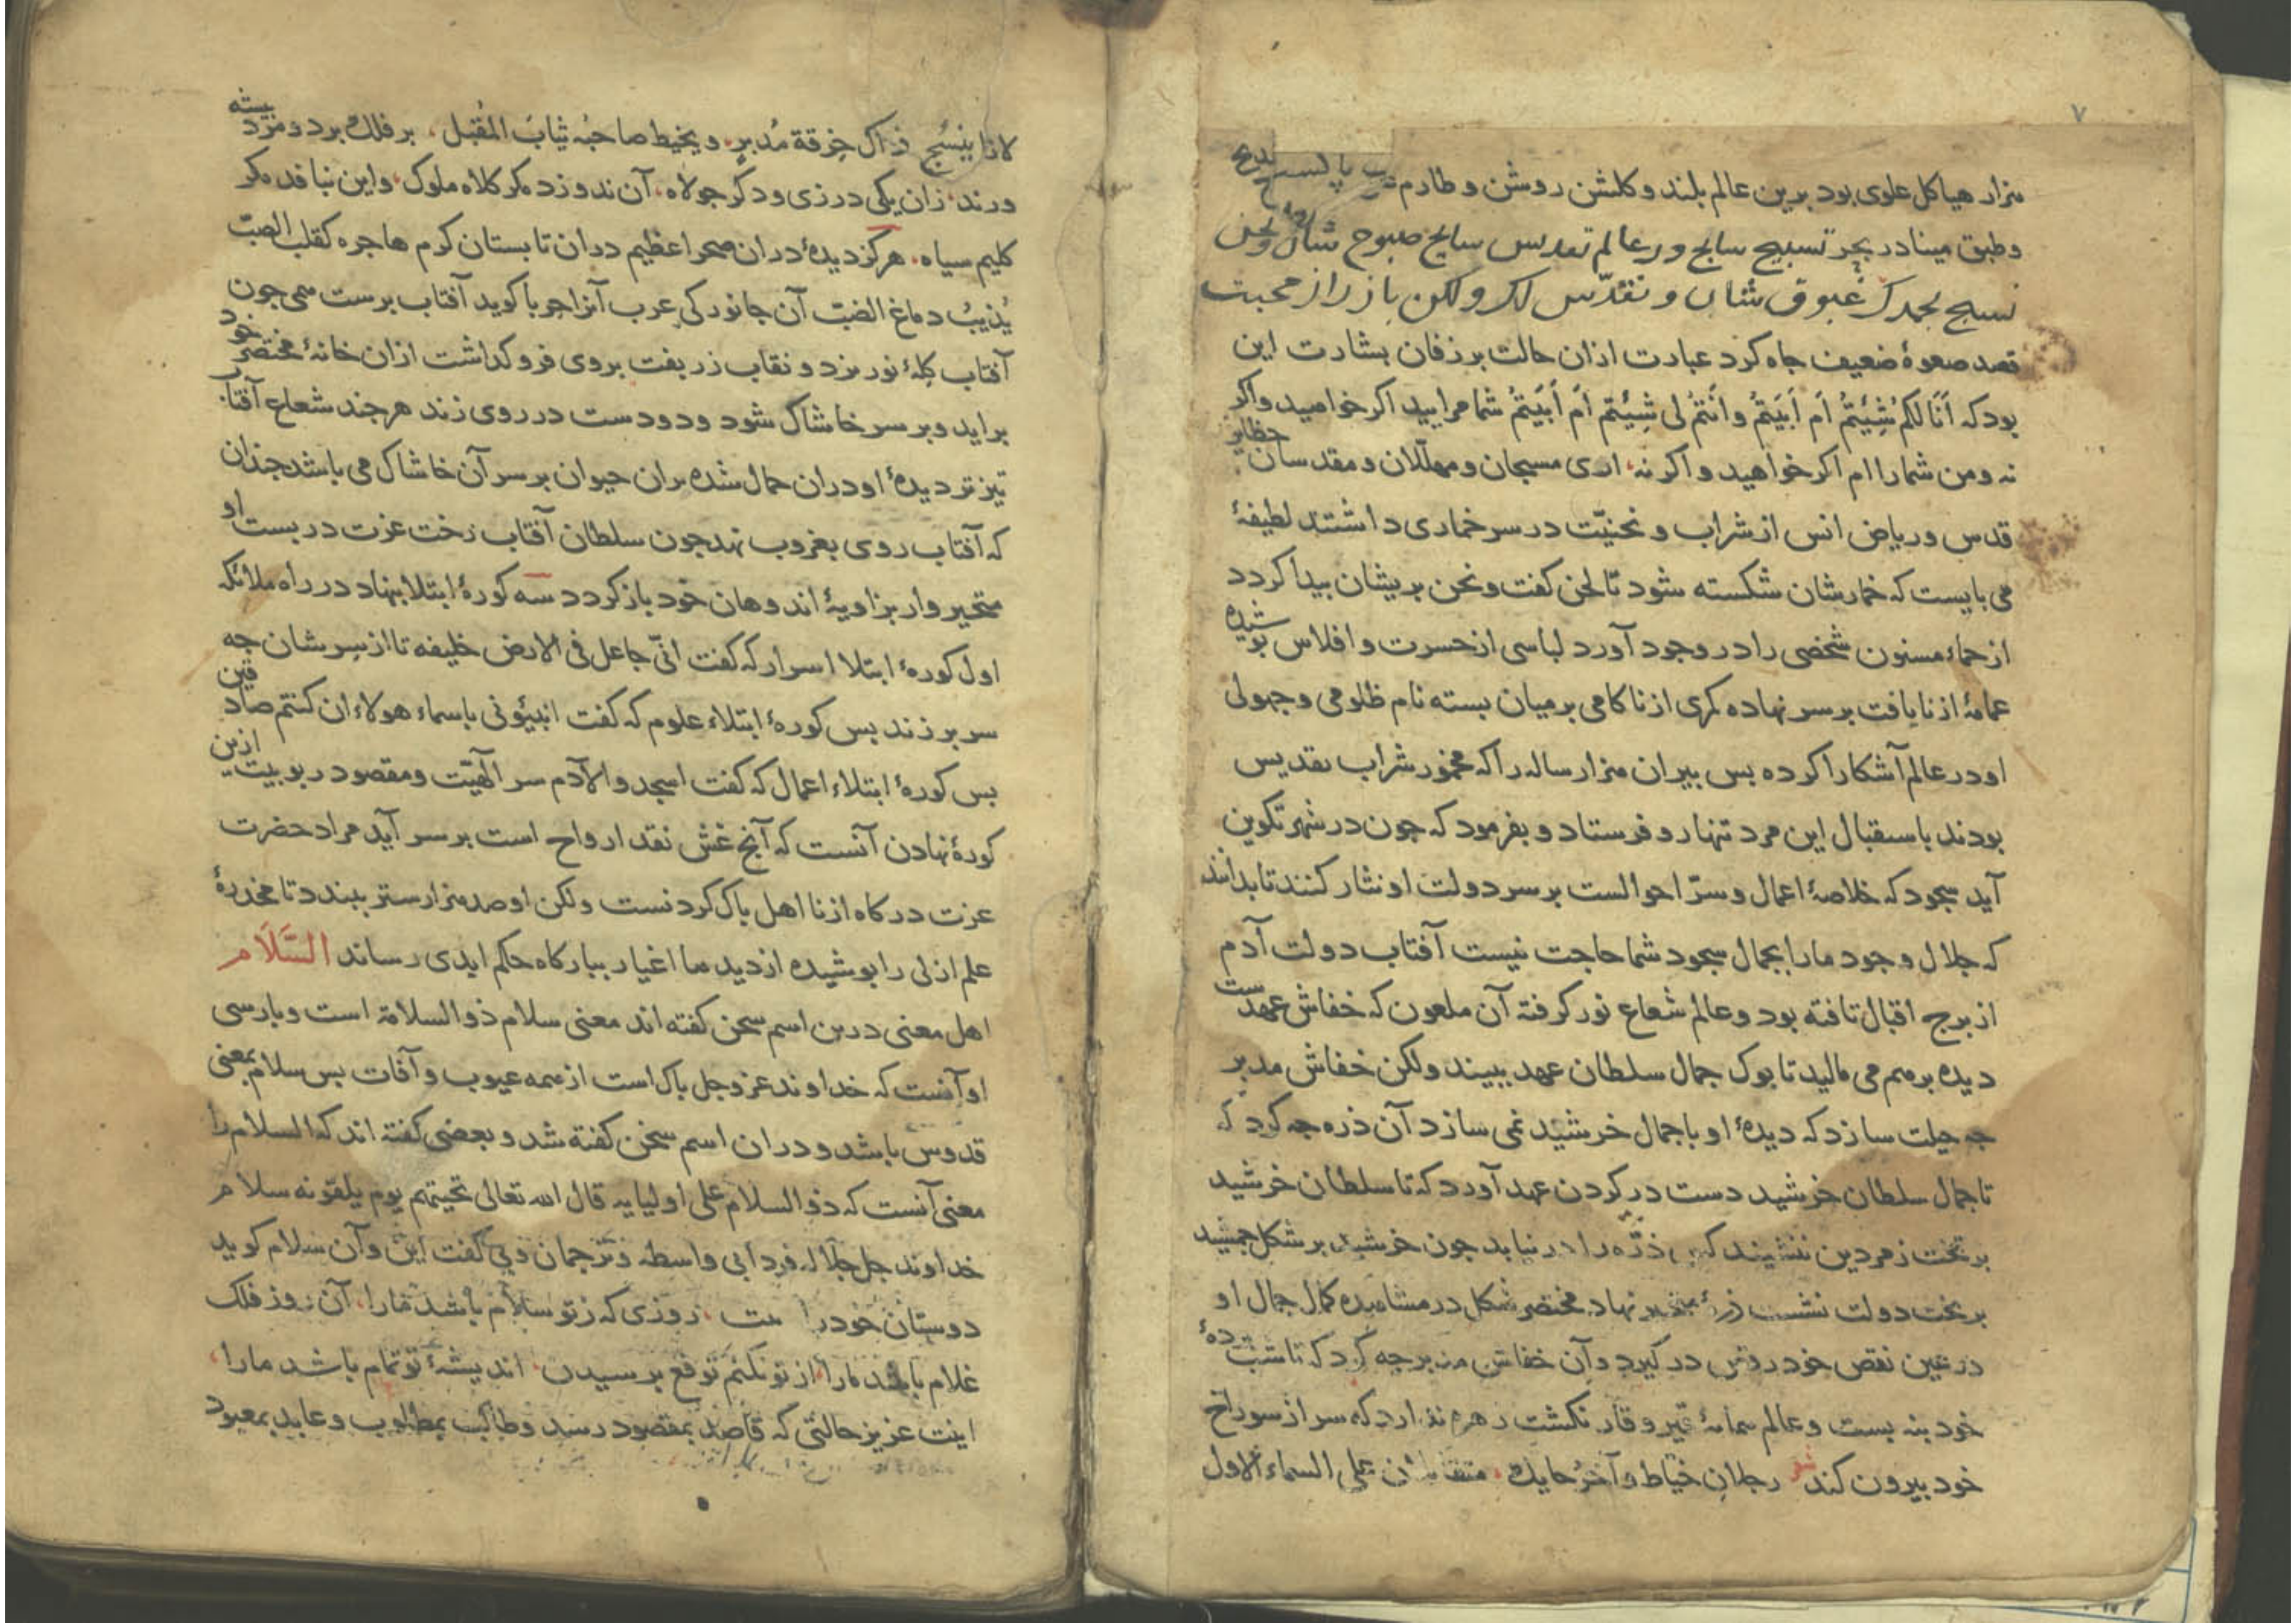 ۷
هزار هیاکل علوی بود برین عالم بلند و کلشن روشن و طارم
وطبق مینا در بحر تسبیح سابح و در عالم تقدیس سایح صبوح شان ونحن
نسبح بحمدک غبوق شان و نقدّس لک ولکن باز راز محبت
قصد صعوهٔ ضعیف جاه کرد عبارت ازان حالت بر زفان بشارت این
بود که اَنَا لکم شِئتُم اَم اَبَیتُم واَنتُم لی شِئتُم اَم اَبَیتُم شما مرایید اکر خواهید واکر
نه ومن شما را ام اکر خواهید و اکر نه، اری مسبحان و مهلّلان و مقدسان حظایر
قدس وریاض انس از شراب ونحنیّت در سر خماری داشتند لطیفهٔ
می بایست که خمارشان شکسته شود تا لحن کفت ونحن بریشان بیدا کردد
از حماء مسنون شخصی را در وجود آورد لباسی از حسرت و افلاس بوشیده
عمامهٔ از نایافت بر سر نهاده کمری از ناکامی بر میان بسته نام ظلومی و جهولی
او در عالم آشکارا کرده بس بیران هزار ساله را که مخمور شراب تقدیس
بودند باستقبال این مرد تنها رو فرستاد و بفرمود که جون در شهر تکوین
آید سجود که خلاصهٔ اعمال و سرّ احوالست بر سر دولت او نثار کنند تا بدانند
که جلال وجود ما را بجمال سجود شما حاجت نیست آفتاب دولت آدم
از برج اقبال تافته بود وعالم شعاع نور کرفته آن ملعون که خفاش عهدست
دیده برهم می مالید تا بوک جمال سلطان عهد ببیند ولکن خفاش مدبر
جه حیلت سازد که دیدهٔ او با جمال خرشید نمی سازد آن ذره جه کرد که
تا جمال سلطان خرشید دست در کردن عهد آورد که تا سلطان خرشید
بر تخت زمردین ننشیند کس ذرّه را در نیابد جون خرشید بر شکل جمشید
بر تخت دولت نشست ذرهٔ متحیر نهاد مختصر شکل در مشاهده کمال جمال او
در عین نقص خود رقص در کیرد و آن خفاش مدبر جه کرد که تا شب بردهٔ
خود بنه بست و عالم بمانهٔ قیر و قار نکشت زهره ندارد که سر از سوراخ
خود بیرون کند شعر رجلان خیّاط وآخرُ حایک، متقابلان علی السماء الاول
لازا ینسُج ذاک خِرقة مُدبِرٍ، ویخیط صاحبُه ثیابَ المُقبل، بر فلک برد و مرد بیشه
ورند، زان یکی درزی ودکر جولاه، آن ندوزد مکر کلاه ملوک، واین نبافد مکر
کلیم سیاه، هرکز دیدهٔ دران صحرا عظیم دران تابستان کرم هاجره کقلب الصّب
یُذیبُ دماغ الضب آن جانور کی عرب آنرا حربا کوید آفتاب برست همی جون
آفتاب کِلهٔ نور بزد و نقاب زربفت بروی فرو کداشت ازان خانهٔ مختصر خود
براید وبر سر خاشاک شود ودودست در روی زند هرجند شعاع آفتاب
تیزتر دیدهٔ او دران جمال شده بران حیوان بر سر آن خاشاک می باشد جندان
که آفتاب روی بغروب نهد جون سلطان آفتاب رخت عزت در بست او
متحیر وار بزاویهٔ اندوهان خود باز کردد سه کورهٔ ابتلا بنهاد در راه ملائکه
اول کورهٔ ابتلا اسرار که کفت انّی جاعل فی الارض خلیفه تا از سِر شان جه
سر برزند بس کورهٔ ابتلاء علوم که کفت انبئونی باسماء هولاء ان کنتم صادقین
بس کورهٔ ابتلاء اعمال که کفت اسجدوا لآدم سر الهیّت ومقصود ربوبیت ازین
کورهٔ نهادن آنست که آنج غش نقد ارواح است بر سر آید مراد حضرت
عزت درکاه از نااهل باک کردنست ولکن او صد هزار ستر ببندد تا مخدرهٔ
علم ازلی را بوشیده از دیدها اغیار ببارکاه حکم ابدی رساند السَّلَام
اهل معنی درین اسم سخن کفته اند معنی سلام ذو السلامة است وبارسی
او آنست که خداوند عز وجل باک است از همه عیوب وآفات بس سلام بمعنی
قدوس باشد ودران اسم سخن کفته شد وبعضی کفته اند که السلام را
معنی آنست که ذو السلام علی اولیایه قال الله تعالی تحیتهم یوم یلقونه سلام
خداوند جل جلاله فردا بی واسطه وترجمان وبی کفت این وآن سلام کوید
دوستان خود را، روزی که ز تو سلام باشد ما را، آن روز فلک
غلام باشد ما را، از تو نکنم توقع برسیدن، اندیشهٔ تو تمام باشد ما را،
اینت عزیز حالتی که قاصد بمقصود رسد وطالب بمطلوب وعابد بمعبود